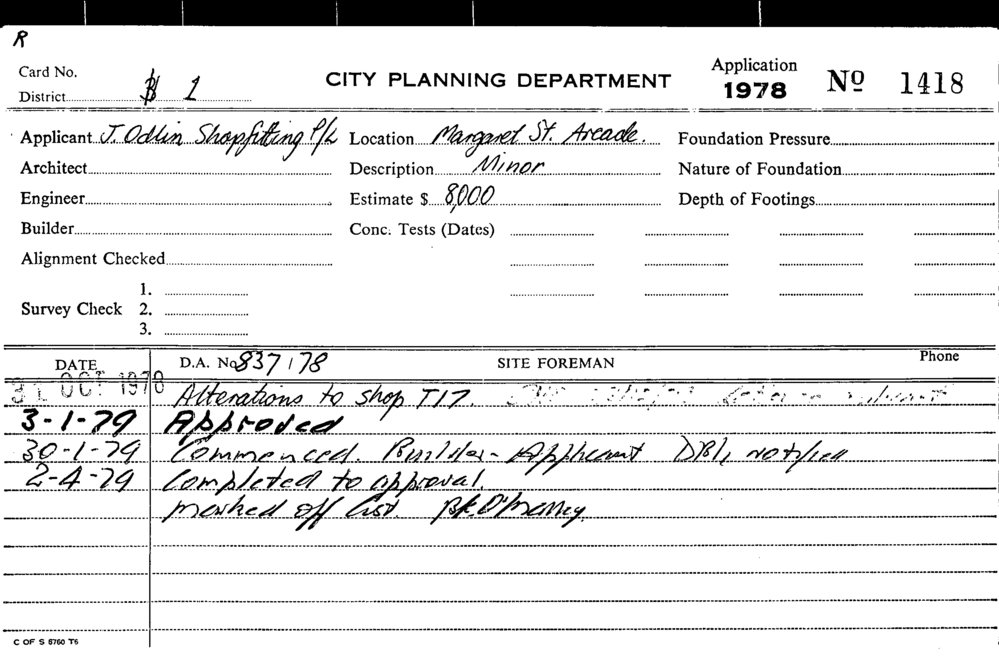 R
Card No.
District B 1
CITY PLANNING DEPARTMENT
Application
1978
Nº 1418
Applicant J. Odlin Shopfitting P/L Location Margaret St. Arcade. Foundation Pressure
Architect Description Minor Nature of Foundation
Engineer Estimate $ 8,000 Depth of Footings
Builder Conc. Tests (Dates)
Alignment Checked
Survey Check 1.
2.
3.
DATE D.A. No 837/78 SITE FOREMAN Phone
31 OCT 1978 Alterations to shop T17.
3-1-79 Approved
30-1-79 Commenced. Builder - Applicant notified
2-4-79 Completed to approval.
marked off list.
C OF S 8760 T6